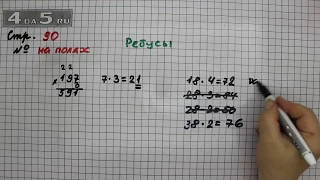 4DA5.RU
Стр. 90
№ на полях
Ребусы
2 2
× 197
3
591
7·3=21
18·4=72
28·3=84
38·2=76